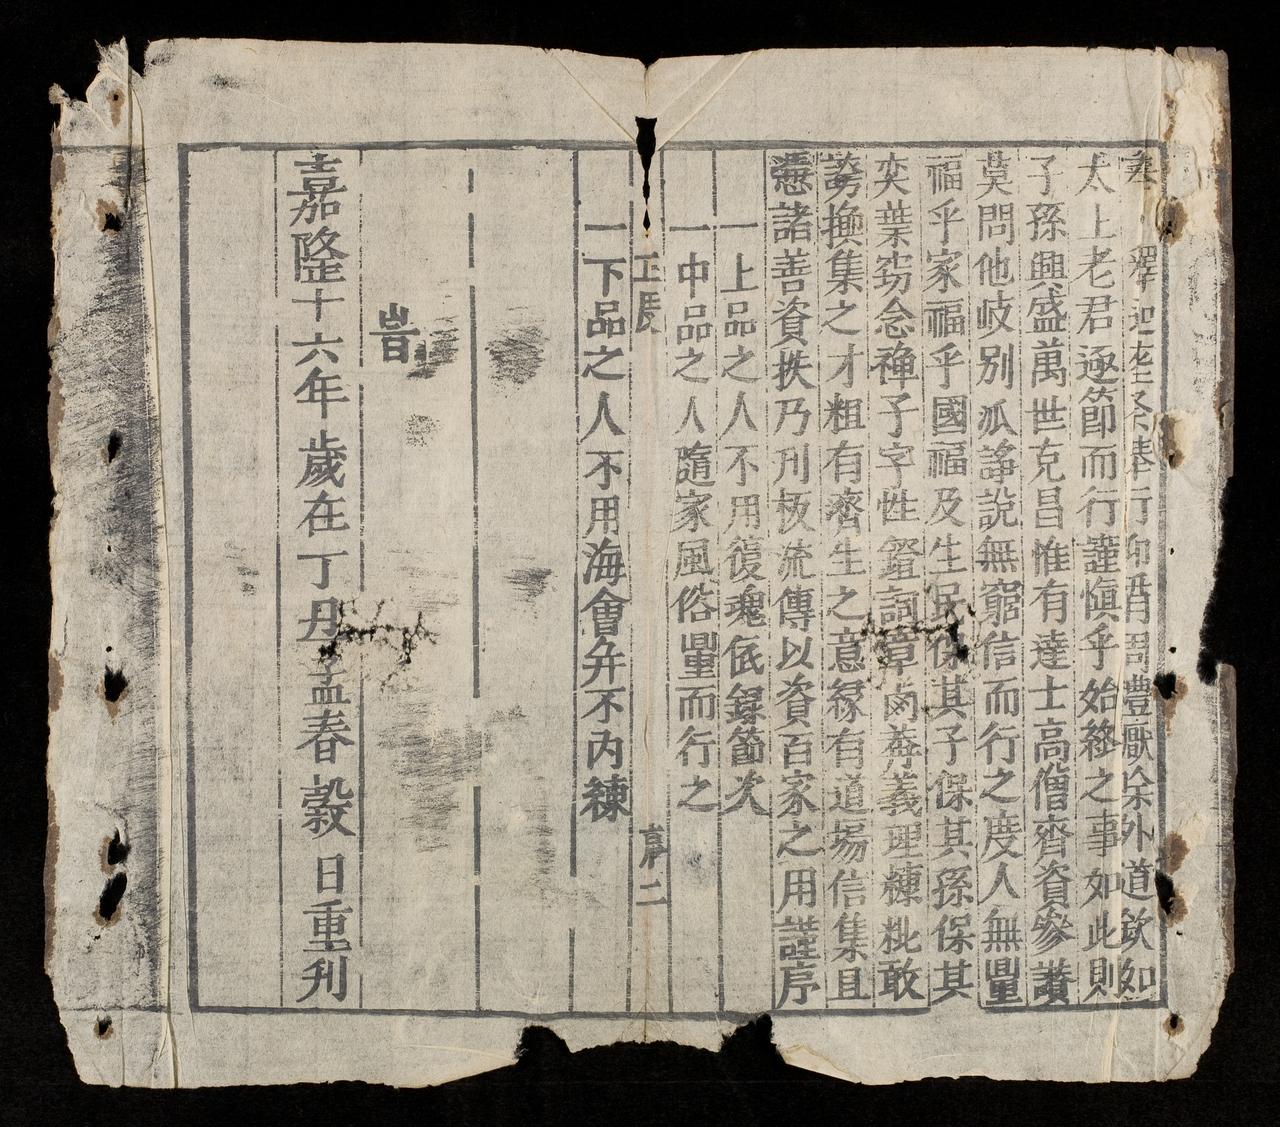 釋迦 行 周禮厭除外道欽如
太上老君逐節而行謹愼乎始終之事如此則
子孫興盛萬世克昌惟有達士高僧齊資參讃
莫問他岐別派諍說無窮信而行之度人無量
福乎家福乎國福及生民保其子保其孫保其
奕葉窃念禅子字性 詞章 義理 敢
謭撫集之才粗有濟生之意緣有道塲信集且
諸善資 乃刋板流傳以資百家之用謹序
一上品之人不用復魂依錄節次
一中品之人隨家風俗量而行之
正度 二
一下品之人不用海會弁不內練
旹
嘉隆十六年歲在丁丑孟春穀日重刋